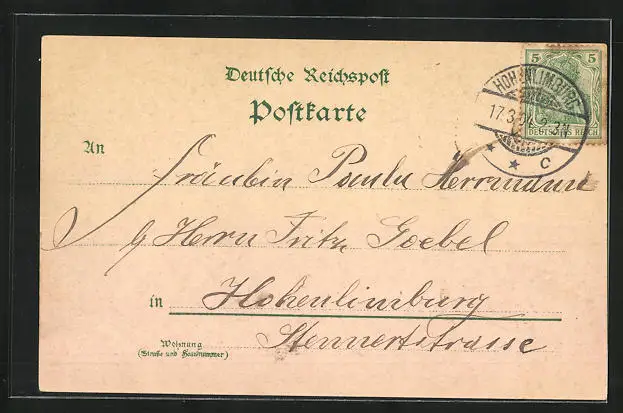 Deutsche Reichspost
Postkarte
5 5
DEUTSCHES REICH
HOHENLIMBURG
17.3.04. 2-3N
* * C
An
Fräulein Paula Herrmann
b/ Herrn Fritz Goebel
in Hohenlimburg
Wohnung
(Straße und Hausnummer)
Stennertstrasse